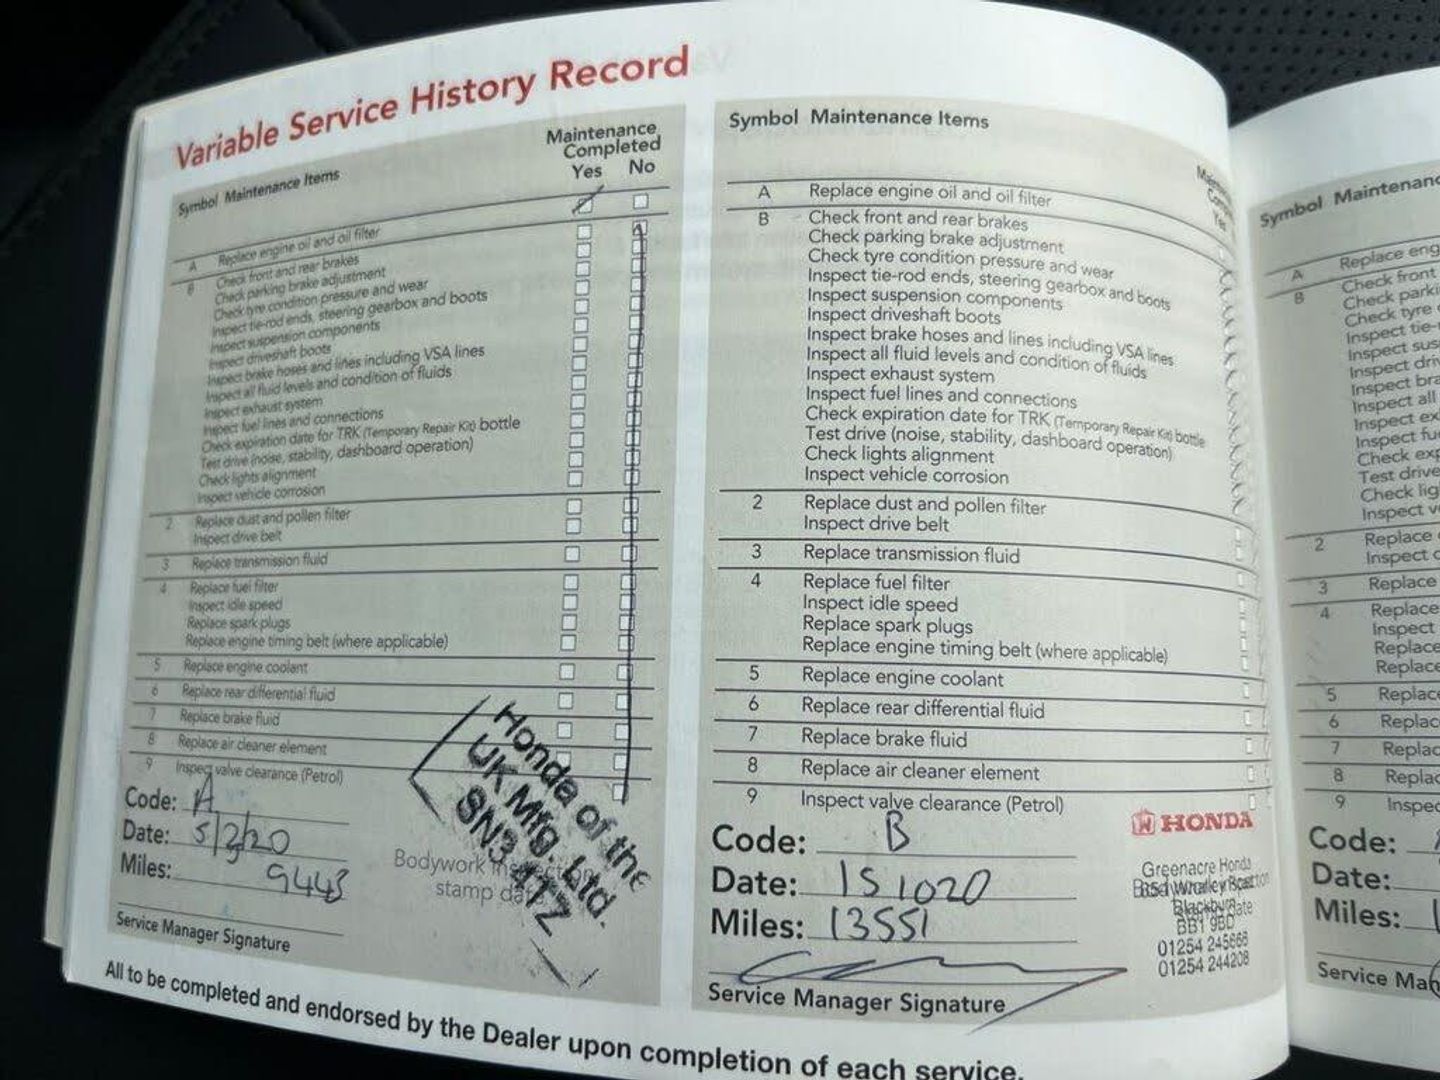 Variable Service History Record
Symbol Maintenance Items
Maintenance
Completed
Yes No
A Replace engine oil and oil filter
B Check front and rear brakes
Check parking brake adjustment
Check tyre condition pressure and wear
Inspect tie-rod ends, steering gearbox and boots
Inspect suspension components
Inspect driveshaft boots
Inspect brake hoses and lines including VSA lines
Inspect all fluid levels and condition of fluids
Inspect exhaust system
Inspect fuel lines and connections
Check expiration date for TRK (Temporary Repair Kit) bottle
Test drive (noise, stability, dashboard operation)
Check lights alignment
Inspect vehicle corrosion
2 Replace dust and pollen filter
Inspect drive belt
3 Replace transmission fluid
4 Replace fuel filter
Inspect idle speed
Replace spark plugs
Replace engine timing belt (where applicable)
5 Replace engine coolant
6 Replace rear differential fluid
7 Replace brake fluid
8 Replace air cleaner element
9 Inspect valve clearance (Petrol)
Code: A
Date: 5/2/20
Miles: 9443
Bodywork
stamp
Honda of the
UK Mfg. Ltd.
SN3 4TZ
Service Manager Signature
Symbol Maintenance Items
Yes
A Replace engine oil and oil filter
B Check front and rear brakes
Check parking brake adjustment
Check tyre condition pressure and wear
Inspect tie-rod ends, steering gearbox and boots
Inspect suspension components
Inspect driveshaft boots
Inspect brake hoses and lines including VSA lines
Inspect all fluid levels and condition of fluids
Inspect exhaust system
Inspect fuel lines and connections
Check expiration date for TRK (Temporary Repair Kit) bottle
Test drive (noise, stability, dashboard operation)
Check lights alignment
Inspect vehicle corrosion
2 Replace dust and pollen filter
Inspect drive belt
3 Replace transmission fluid
4 Replace fuel filter
Inspect idle speed
Replace spark plugs
Replace engine timing belt (where applicable)
5 Replace engine coolant
6 Replace rear differential fluid
7 Replace brake fluid
8 Replace air cleaner element
9 Inspect valve clearance (Petrol)
Code: B
Date: 151020
Miles: 13551
HONDA
Greenacre Honda
BB1 9BD
01254 245666
01254 244208
Service Manager Signature
All to be completed and endorsed by the Dealer upon completion of each service.
Symbol Maintenanc
A Replace eng
B Check front
Check parki
Check tyre
Inspect tie-
Inspect sus
Inspect driv
Inspect bra
Inspect all
Inspect ex
Inspect fu
Check exp
Test drive
Check lig
Inspect v
2 Replace
Inspect
3 Replace
4 Replace
Inspect
Replace
Replace
5 Replac
6 Replac
7 Replac
8 Replac
9 Inspec
Code:
Date:
Miles:
Service Ma